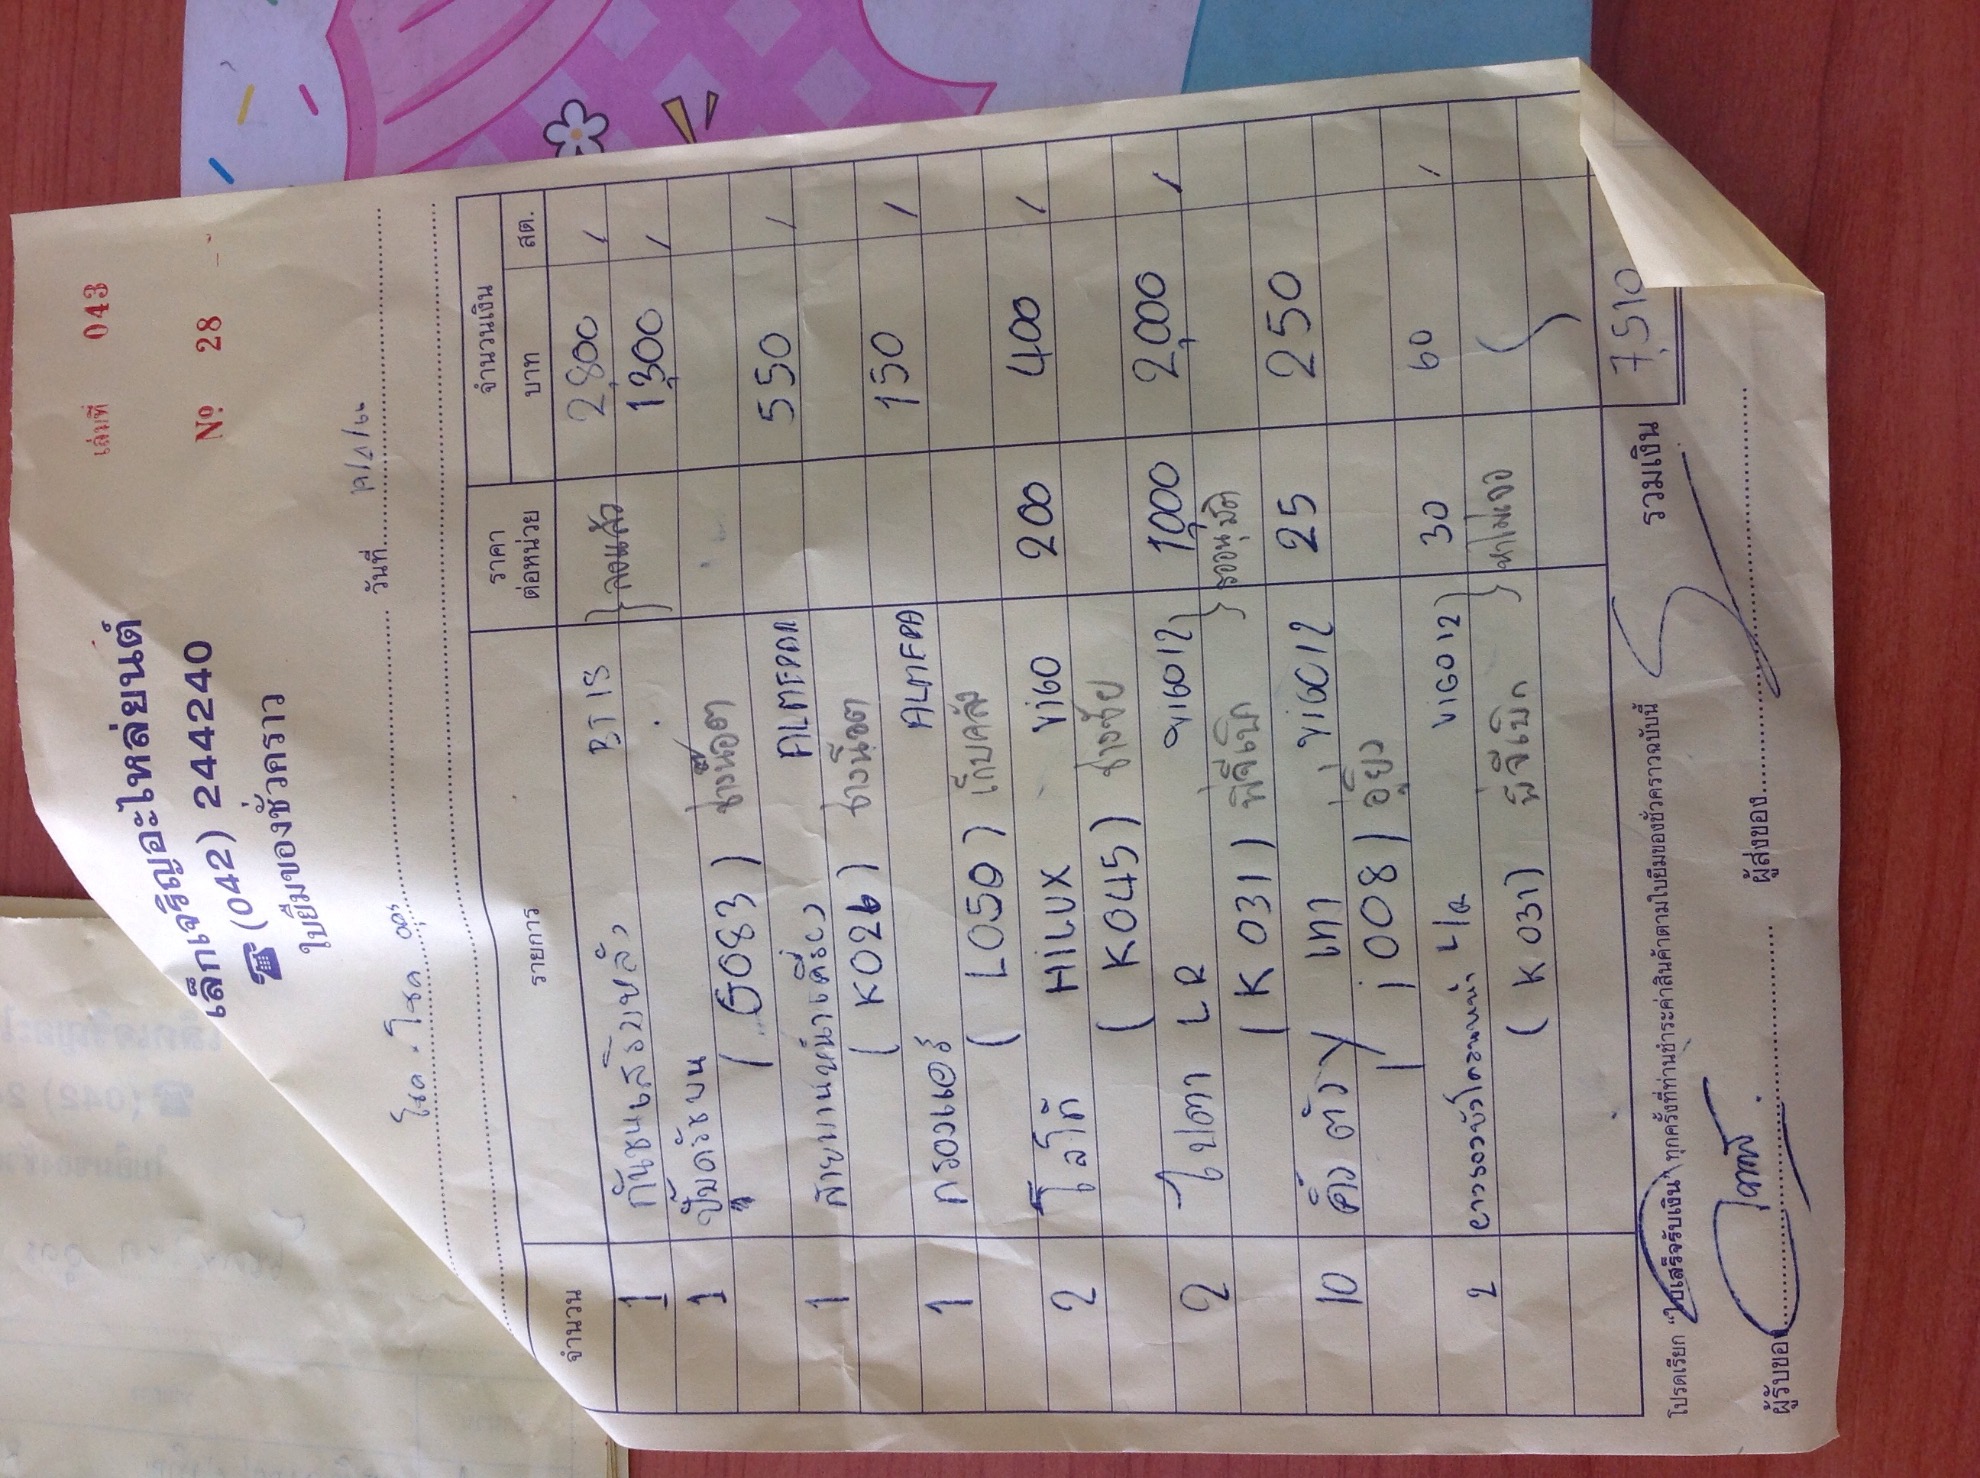 เล่มที่ 043
เล็กเจริญอะไหล่ยนต์
(042) 244240
Nº 28
☎ (042) 244240
ใบยืมของชั่วคราว
วันที่
โชค . โชค อุดร
จำนวน รายการ ราคาต่อหน่วย จำนวนเงิน
บาท สต.
1 กันชนเสริมหลัง BT 1S } ลงแล้ว 2,800 /
1 ปั๊มครัชบน 1,300 /
( G083 ) ช่างน๊อต
1 สายพานหน้าเครื่อง ALMERA 550 /
( K026 ) ช่างน๊อต
1 กรองแอร์ ALMERA 150 /
( L050 ) เก็บคลัง
2 โลโก้ HILUX VIGO 200 400 /
( K045 ) ช่างชัย
2 ไฟตา LR VIGO12 1,000 2,000 /
( K 031 ) พี่จีเบิก } รออนุมัติ
10 คิ้วตัว Y เทา VIGO12 25 250
( i 008 ) อู๋ยิว
2 ยางรองหัวโคลงหน้า VIGO12 30 60 /
( K 031 ) พี่จีเบิก } หาไม่เจอ
รวมเงิน 7,510
โปรดเรียก "ใบเสร็จรับเงิน" ทุกครั้งที่ท่านชำระค่าสินค้าตามใบยืมของชั่วคราวฉบับนี้
ผู้รับของ ผู้ส่งของ